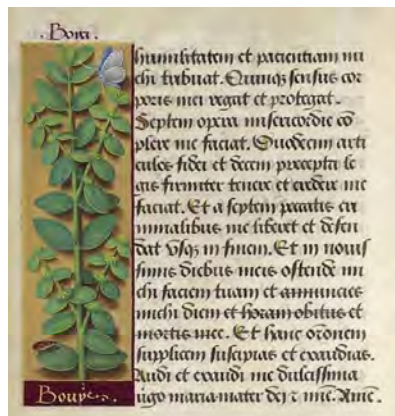 humilitatem et pacientiam mi
chi tribuat. Quinq; sensus cor
poris mei regat et protegat.
Septem opera misericordie cō
plere me faciat. Duodecim arti
culos fidei et decem precepta le
gis firmiter tenere et credere me
faciat. Et a septem peccatis cri
minalibus me liberet et defen
dat usq; in finem. Et in nouis
simis diebus meis ostende mi
chi faciem tuam et annuncies
michi diem et horam obitus et
mortis mee. Et hanc orōnem
supplicem suscipias et exaudias.
Audi et exaudi me dulcissima
uirgo maria mater dei ⁊ mīe. Amē.